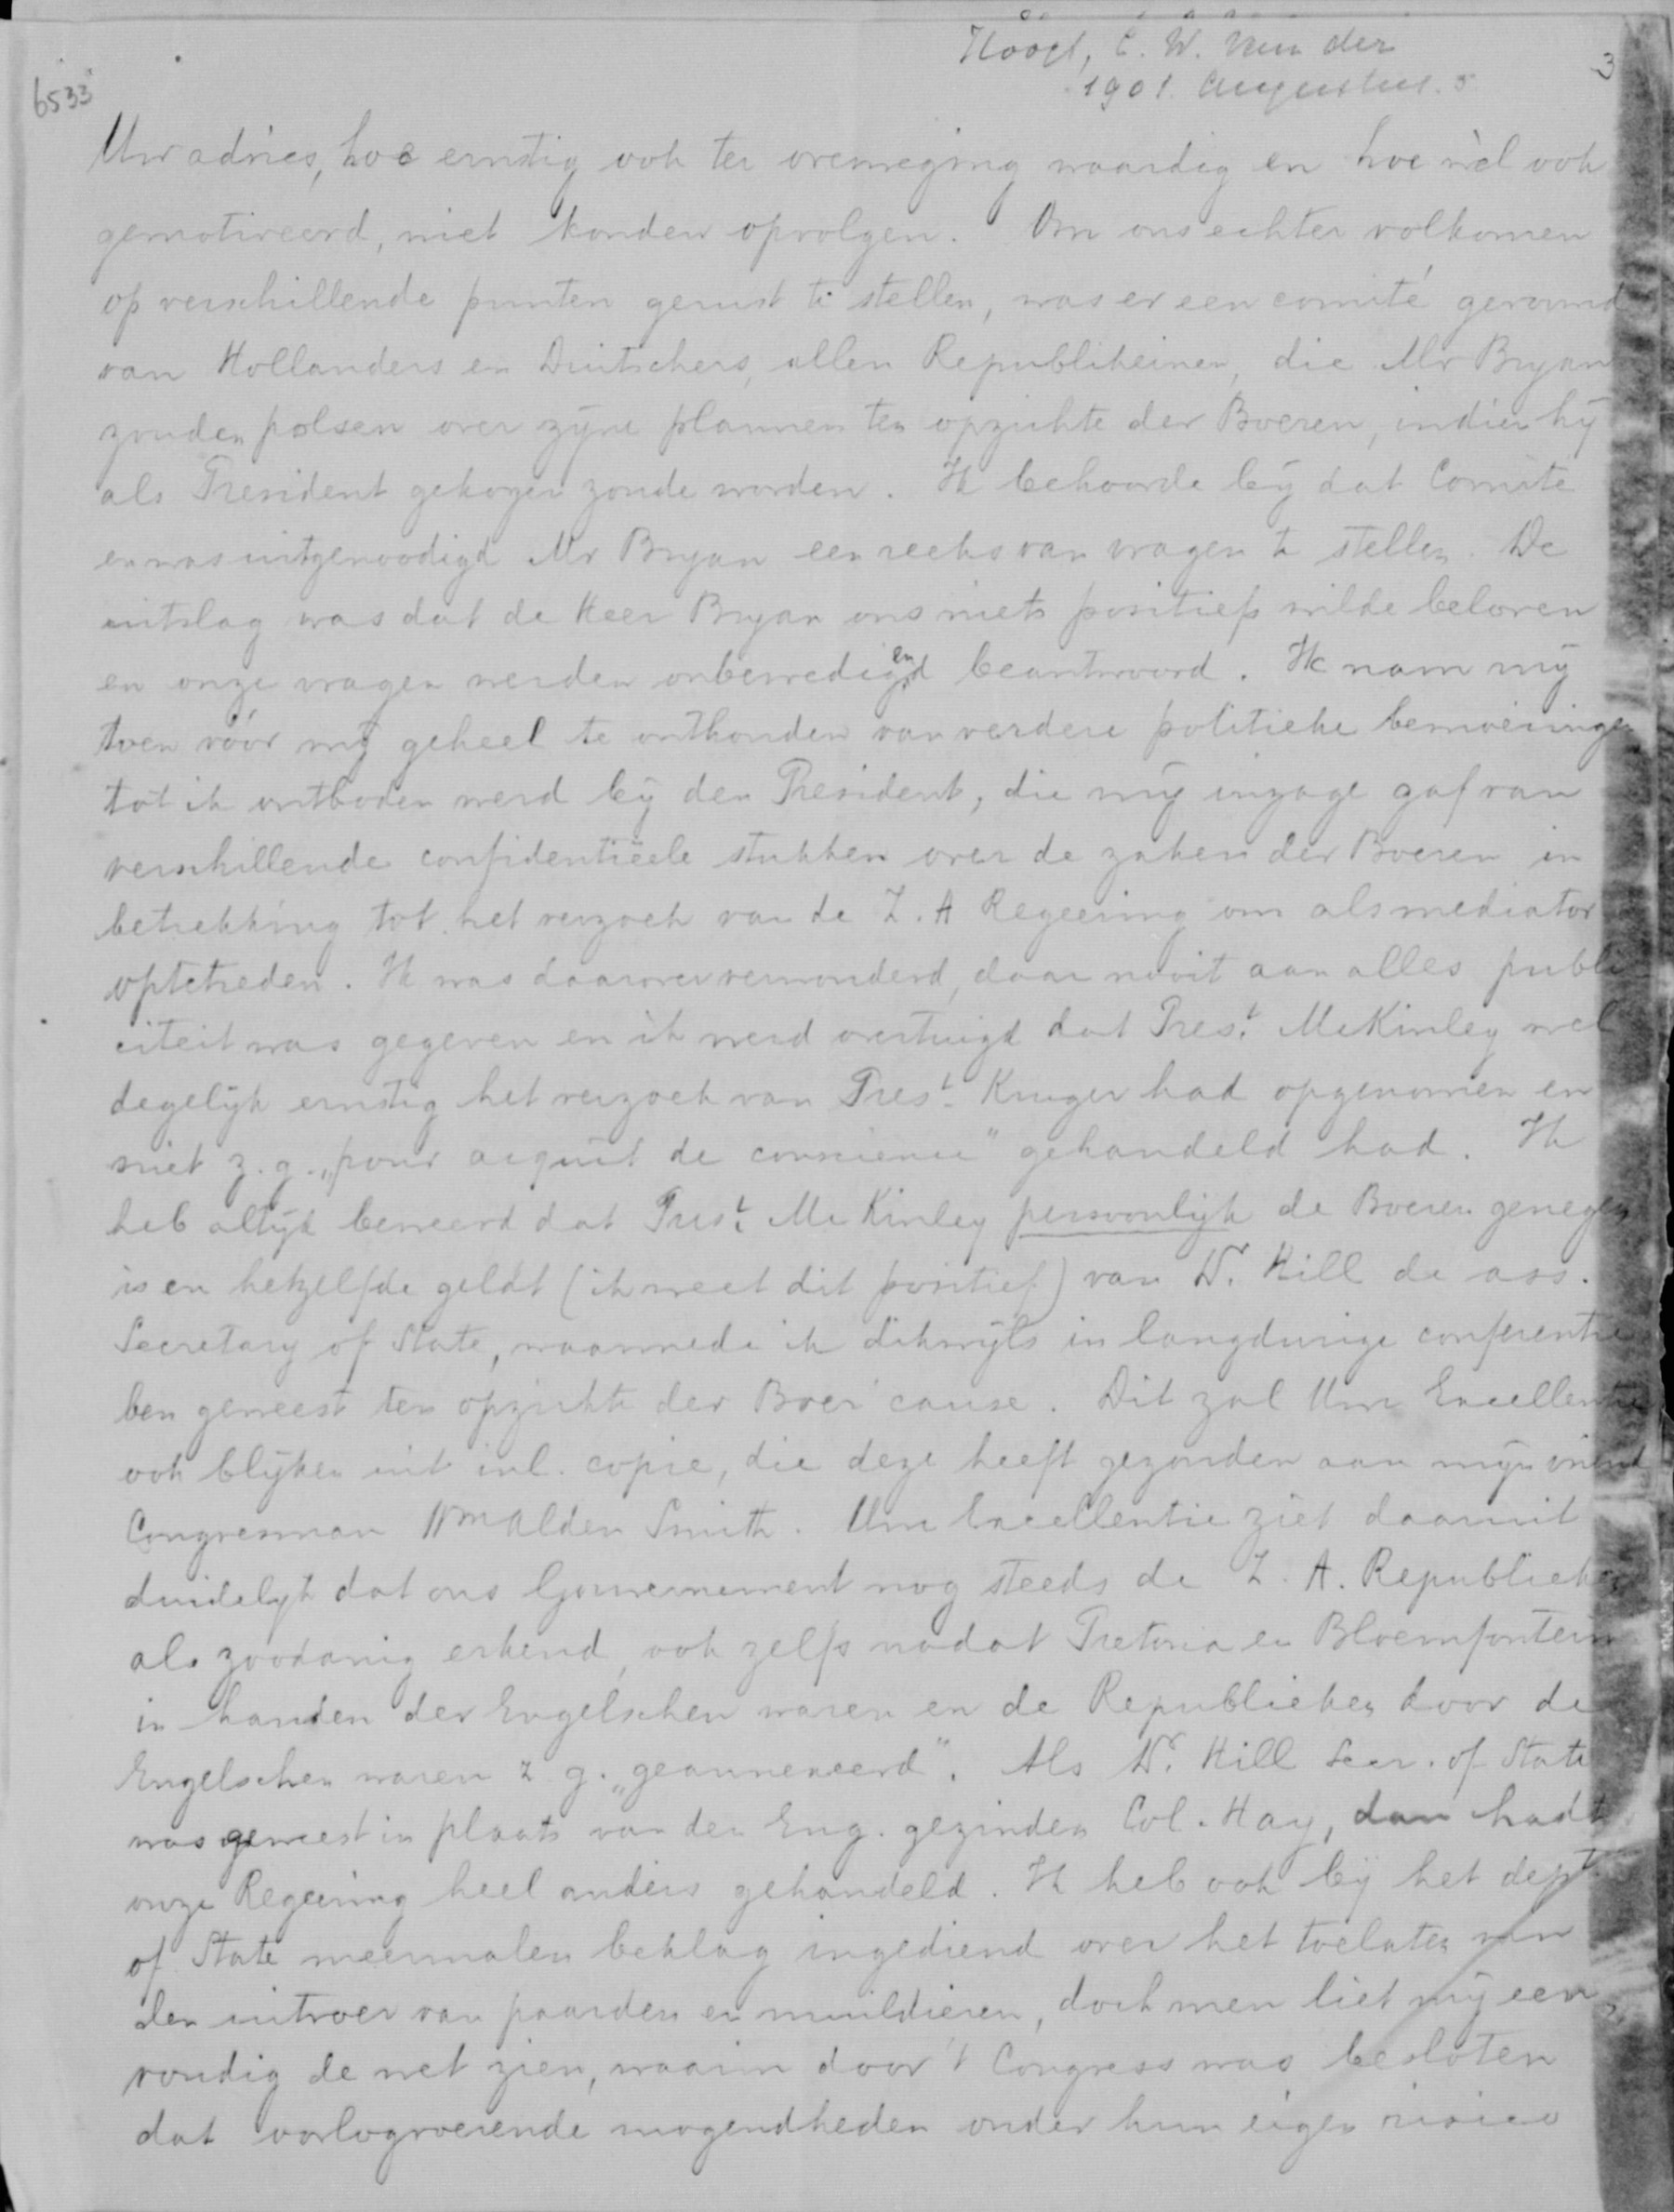 Hoogt, C. W. van der
1901. Augustus. 5.
3
6533
Uw advies, hoe ernstig ook ter overweging waardig en hoe wèl ook
gemotiveerd, niet konden opvolgen. Om ons echter volkomen
op verschillende punten gerust te stellen, was er een comité gevormd
van Hollanders en Duitschers, allen Republikeinen, die Mr Bryan
zouden polsen over zijne plannen ten opzichte der Boeren, indien hij
als President gekozen zoude worden. Ik behoorde bij dat Comité
en was uitgenoodigd Mr Bryan een reeks van vragen te stellen. De
uitslag was dat de Heer Bryan ons niets positiefs wilde beloven
en onze vragen werden onbevredigend beantwoord. Ik nam mij
toen vóór mij geheel te onthouden van verdere politieke bemoeiingen
tot ik ontboden werd bij den President, die mij inzage gaf van
verschillende confidentiëele stukken over de zaken der Boeren in
betrekking tot het verzoek van de Z. A Regeering om als mediator
optetreden. Ik was daarover verwonderd, daar nooit aan alles publi
citeit was gegeven en ik werd overtuigd dat Prest. McKinley wel
degelijk ernstig het verzoek van Prest. Kruger had opgenomen en
niet z. g. „pour acquit de conscience" gehandeld had. Ik
heb altijd beweerd dat Prest. McKinley persoonlijk de Boeren genegen
is en hetzelfde geldt (ik weet dit positief) van Dr. Hill de ass.
Secretary of State, waarmede ik dikwijls in langdurige conferentie
ben geweest ten opzichte der Boer cause. Dit zal Uwe Excellentie
ook blijken uit inl. copie, die deze heeft gezonden aan mijn vriend
Congresman Wm Alden Smith. Uwe Excellentie ziet daaruit
duidelijk dat ons Gouvernement nog steeds de Z. A. Republieken
als zoodanig erkend, ook zelfs nadat Pretoria en Bloemfontein
in handen der Engelschen waren en de Republieken door de
Engelschen waren z. g. „geannexeerd". Als Dr. Hill Secr. of State
was geweest in plaats van den Eng. gezinden Col. Hay, dan hadt
onze Regeering heel anders gehandeld. Ik heb ook bij het dept.
of State meermalen beklag ingediend over het toelaten van
den uitvoer van paarden en muildieren, doch men liet mij een
voudig de wet zien, waarin door 't Congress was besloten
dat oorlogvoerende mogendheden onder hun eigen risico